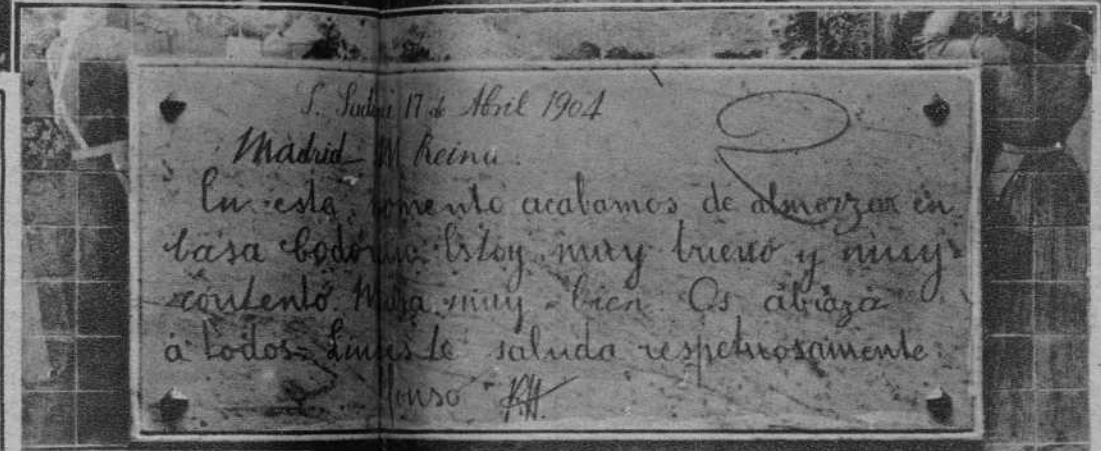 S. Sadurní 17 de Abril 1904
Madrid M Reina.
En este momento acabamos de almorzar en
casa Codorniu Estoy muy bueno y muy
contento. muy bien Os abraza
á todos= te saluda respetuosamente
Alfonso